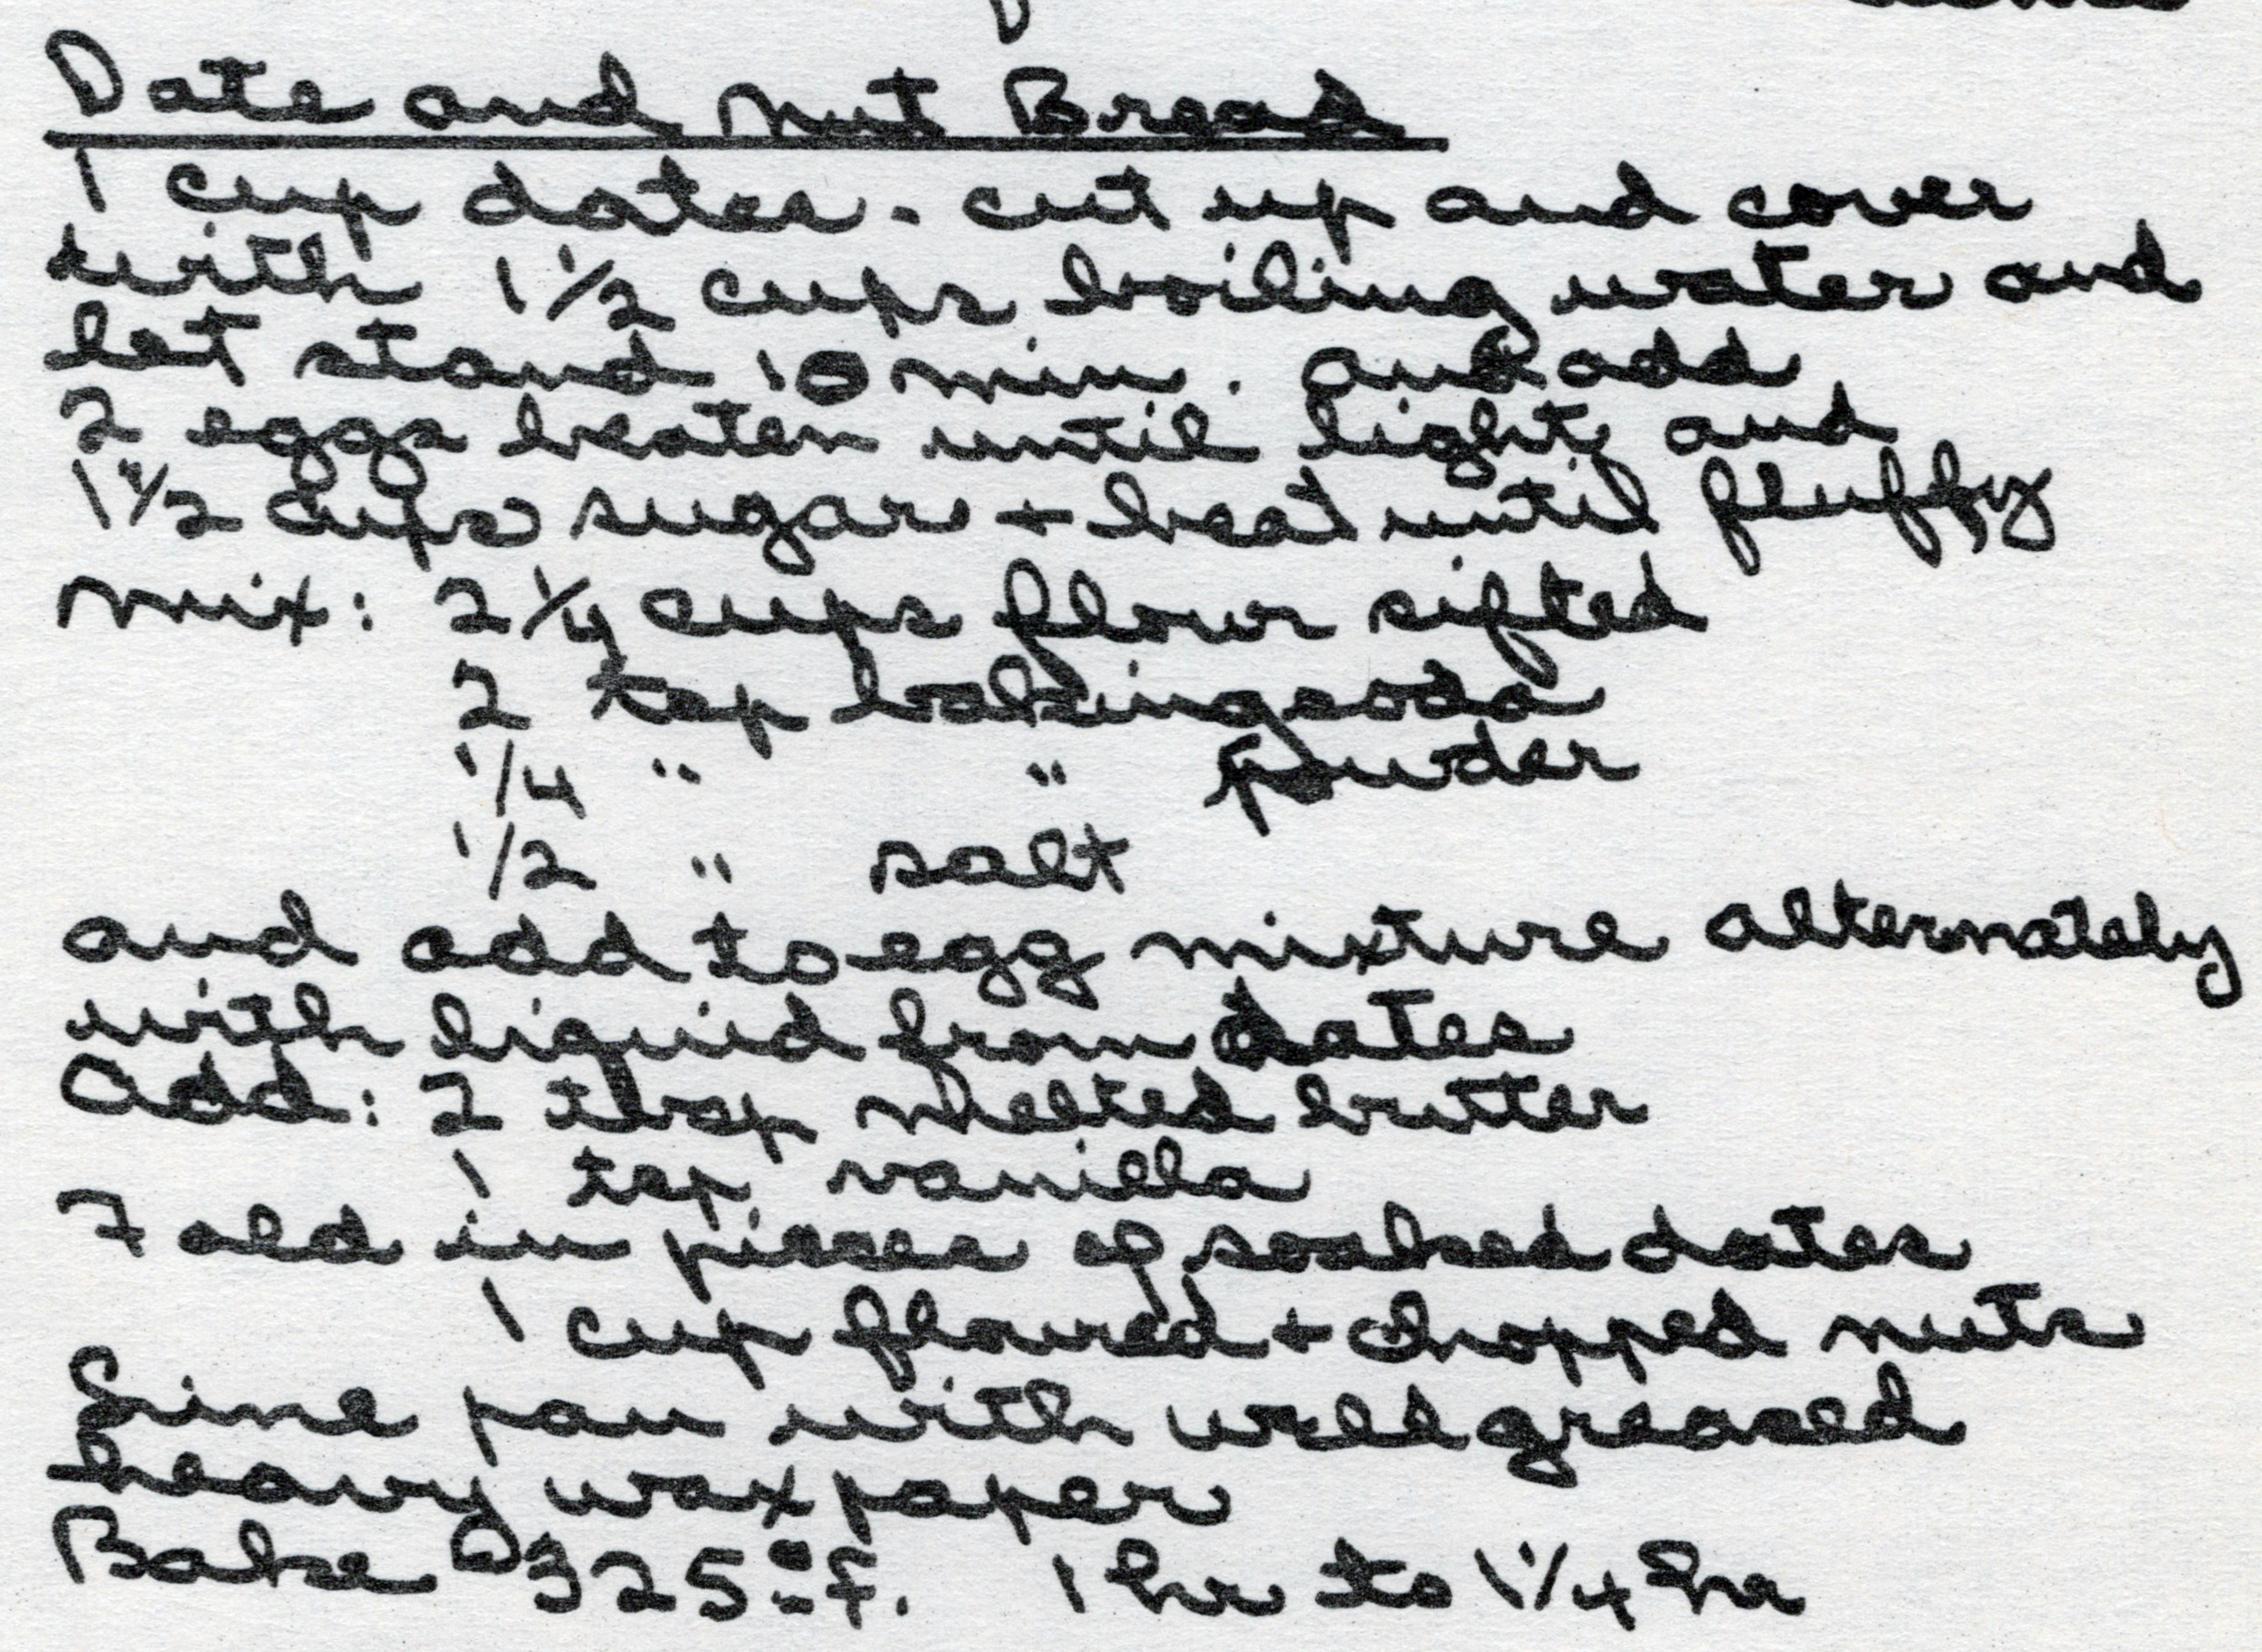 Date and Nut Bread
1 cup dates - cut up and cover
with 1 1/2 cups boiling water and
let stand 10 min. and add
2 eggs beaten until light and
1 1/2 cups sugar + beat until fluffy
Mix: 2 1/4 cups flour sifted
2 tsp baking soda
1/4 " " powder
1/2 " salt
and add to egg mixture alternately
with liquid from dates
Add: 2 tbsp melted butter
1 tsp vanilla
Fold in pieces of soaked dates
1 cup floured + chopped nuts
Line pan with well greased
heavy wax paper
Bake @ 325° F. 1 hr to 1 1/4 hr